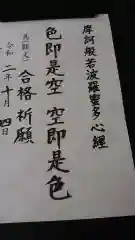 摩訶般若波羅蜜多心経
色即是空 空即是色
為(願文) 合格祈願
令和二年十月四日